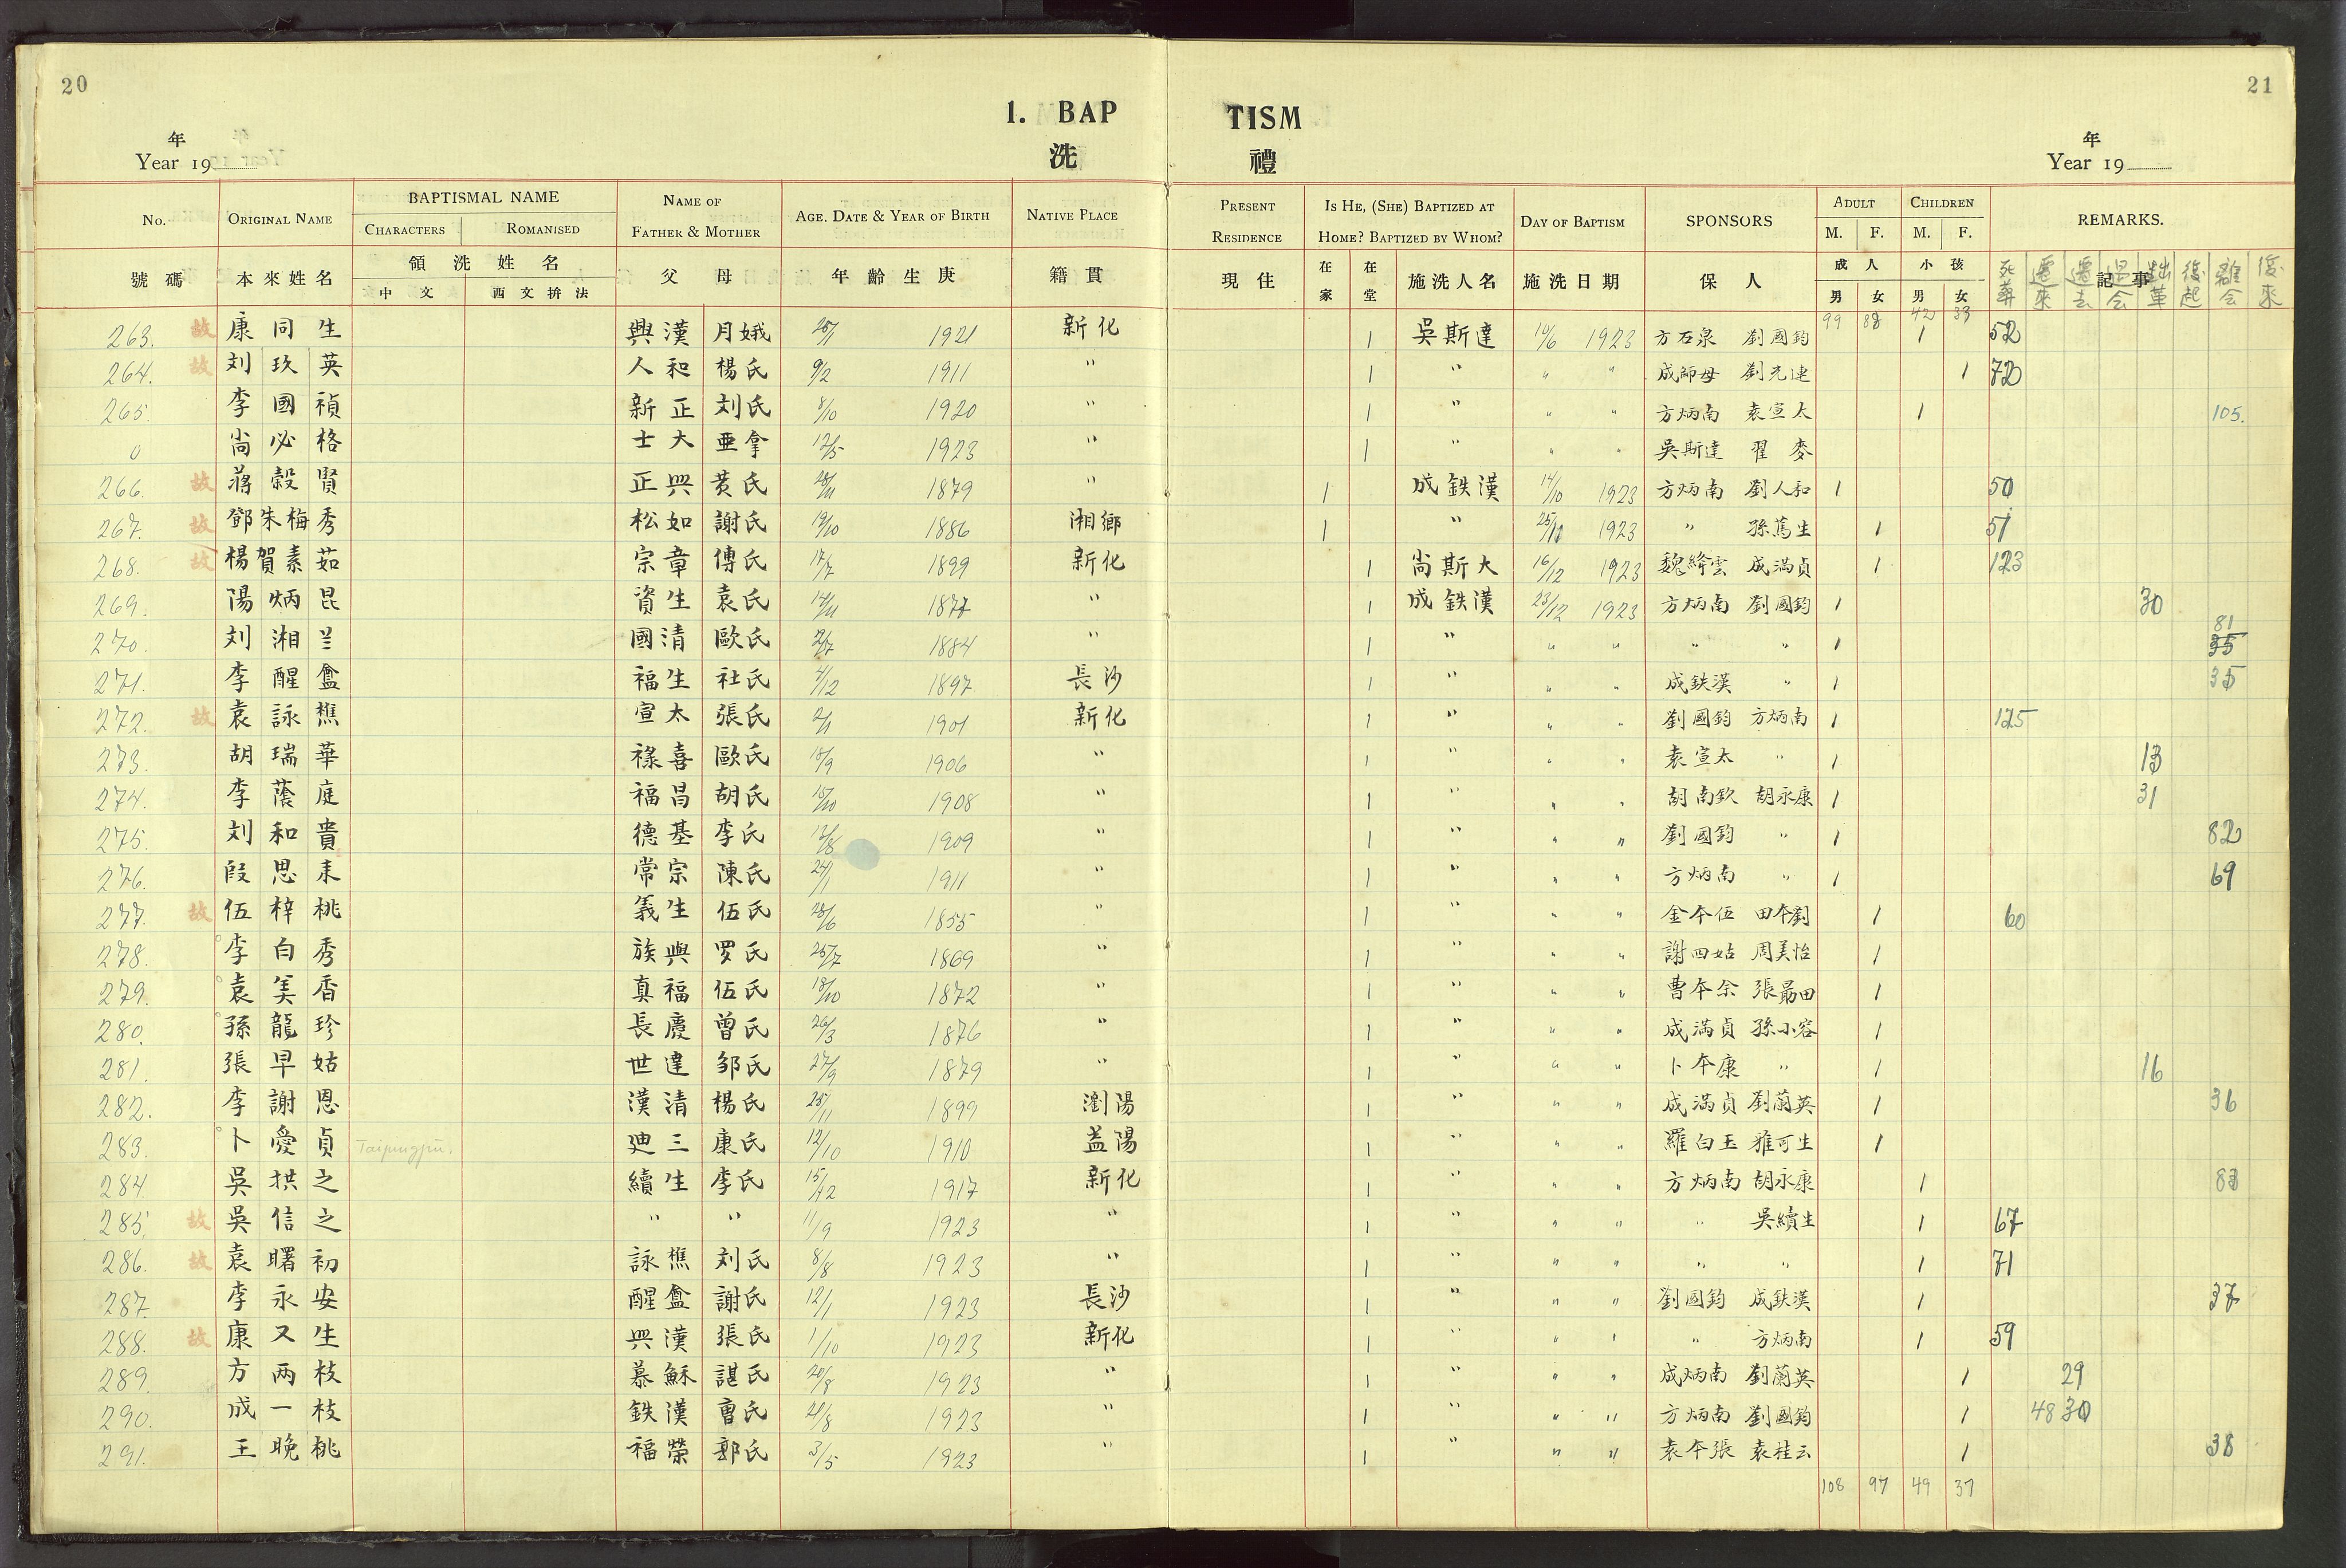 20
21
1. BAP TISM
洗 禮
年
Year 19
年
Year 19
No. ORIGINAL NAME BAPTISMAL NAME NAME OF FATHER & MOTHER AGE. DATE & YEAR OF BIRTH NATIVE PLACE PRESENT RESIDENCE IS HE, (SHE) BAPTIZED AT HOME? BAPTIZED BY WHOM? DAY OF BAPTISM SPONSORS ADULT CHILDREN REMARKS.
CHARACTERS ROMANISED M. F. M. F.
號碼 本來姓名 領洗姓名 父母 年齡生庚 籍貫 現住 在家 在堂 施洗人名 施洗日期 保人 成人 小孩 記事
中文 西文拚法 男 女 男 女 死葬 遷來 遷去 退会 革出 復起 離会 復來
99 88 42 33
263. 故 康同生 興漢 月娥 25/1 1921 新化 1 吳斯達 10/6 1923 方石泉 劉國鈞 1 52
264. 故 刘玖英 人和 楊氏 9/2 1911 " 1 " " " 成師母 劉光連 1 72
265. 李國禎 新正 刘氏 8/10 1920 " 1 " " " 方炳南 袁宣太 1 105.
0 尚必格 士大 亜拿 12/5 1923 " 1 " " " 吳斯達 翟麥
266. 故 蔣榖賢 正興 黄氏 28/11 1879 " 1 成鉄漢 14/10 1923 方炳南 劉人和 1 50
267. 故 鄧朱梅秀 松如 謝氏 19/10 1886 湘鄉 1 " 25/11 1923 " 孫萬生 1 51
268. 故 楊賀素茹 宗章 傅氏 17/7 1899 新化 1 尚斯大 16/12 1923 魏絳雲 成滿貞 1 123
269. 陽炳昆 資生 袁氏 14/11 1877 " 1 成鉄漢 23/12 1923 方炳南 劉國鈞 1 30
270. 刘湘兰 國清 歐氏 1884 " 1 " " " " " 1 81 35
271. 李醒盦 福生 社氏 4/12 1897 長沙 1 " " " 成鉄漢 " 1 35
272. 故 袁詠樵 宣太 張氏 2/1 1901 新化 1 " " " 劉國鈞 方炳南 1 125
273. 胡瑞華 祿喜 歐氏 18/9 1906 " 1 " " " 袁宣太 " 1 13
274. 李蔭庭 福昌 胡氏 15/10 1908 " 1 " " " 胡南欽 胡永康 1 31
275. 刘和貴 德基 李氏 12/8 1909 " 1 " " " 劉國鈞 " 1 82
276. 段思来 常宗 陳氏 24/1 1911 " 1 " " " 方炳南 " 1 69
277. 故 伍梓桃 義生 伍氏 28/6 1855 " 1 " " " 金夲伍 田夲劉 1 60
278. 李白秀 族興 罗氏 25/7 1869 " 1 " " " 謝四姑 周美怡 1
279. 袁美香 真福 伍氏 18/10 1872 " 1 " " " 曹夲余 張勗田 1
280. 孫龍珍 長慶 曾氏 26/3 1876 " 1 " " " 成滿貞 孫小容 1
281. 張早姑 世達 邹氏 27/9 1879 " 1 " " " 卜夲康 " 1 16
282. 李謝恩 漢清 楊氏 25/11 1899 瀏陽 1 " " " 成滿貞 劉蘭英 1 36
283. 卜愛貞 廸三 康氏 12/10 1910 益陽 1 " " " 羅白玉 雅可生 1
284. 吳拱之 續生 李氏 15/12 1917 新化 1 " " " 方炳南 胡永康 1 83
285. 故 吳信之 " " 11/9 1923 " 1 " " " " 吳續生 1 67
286. 故 袁曙初 詠樵 刘氏 8/8 1923 " 1 " " " " " 1 71
287. 李永安 醒盦 謝氏 12/1 1923 長沙 1 " " " 劉國鈞 成鉄漢 1 37
288. 故 康又生 興漢 張氏 1/10 1923 新化 1 " " " " 方炳南 1 59
289. 方兩枝 慕穌 諶氏 20/8 1923 " 1 " " " 成炳南 劉蘭英 1 29
290. 成一枝 鉄漢 曹氏 21/8 1923 " 1 " " " 方炳南 劉國鈞 1 48 30
291. 王晚桃 福榮 郭氏 3/5 1923 " 1 " " " 袁夲張 袁桂云 1 38
108 97 49 37